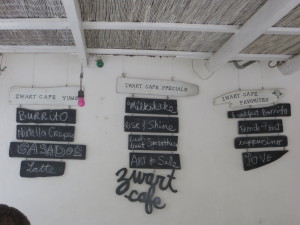 ZWART CAFE YUMM
BURRITO
Nutella Crepes
SALADS
Latte
ZWART CAFE SPECIALS
Milkshake
Rise & Shine
Smoothie
ART 4 Sale
zwart
.cafe
ZWART CAFE FAVORITES
Breakfast Burrito
French Toast
cappuccino
LOVE